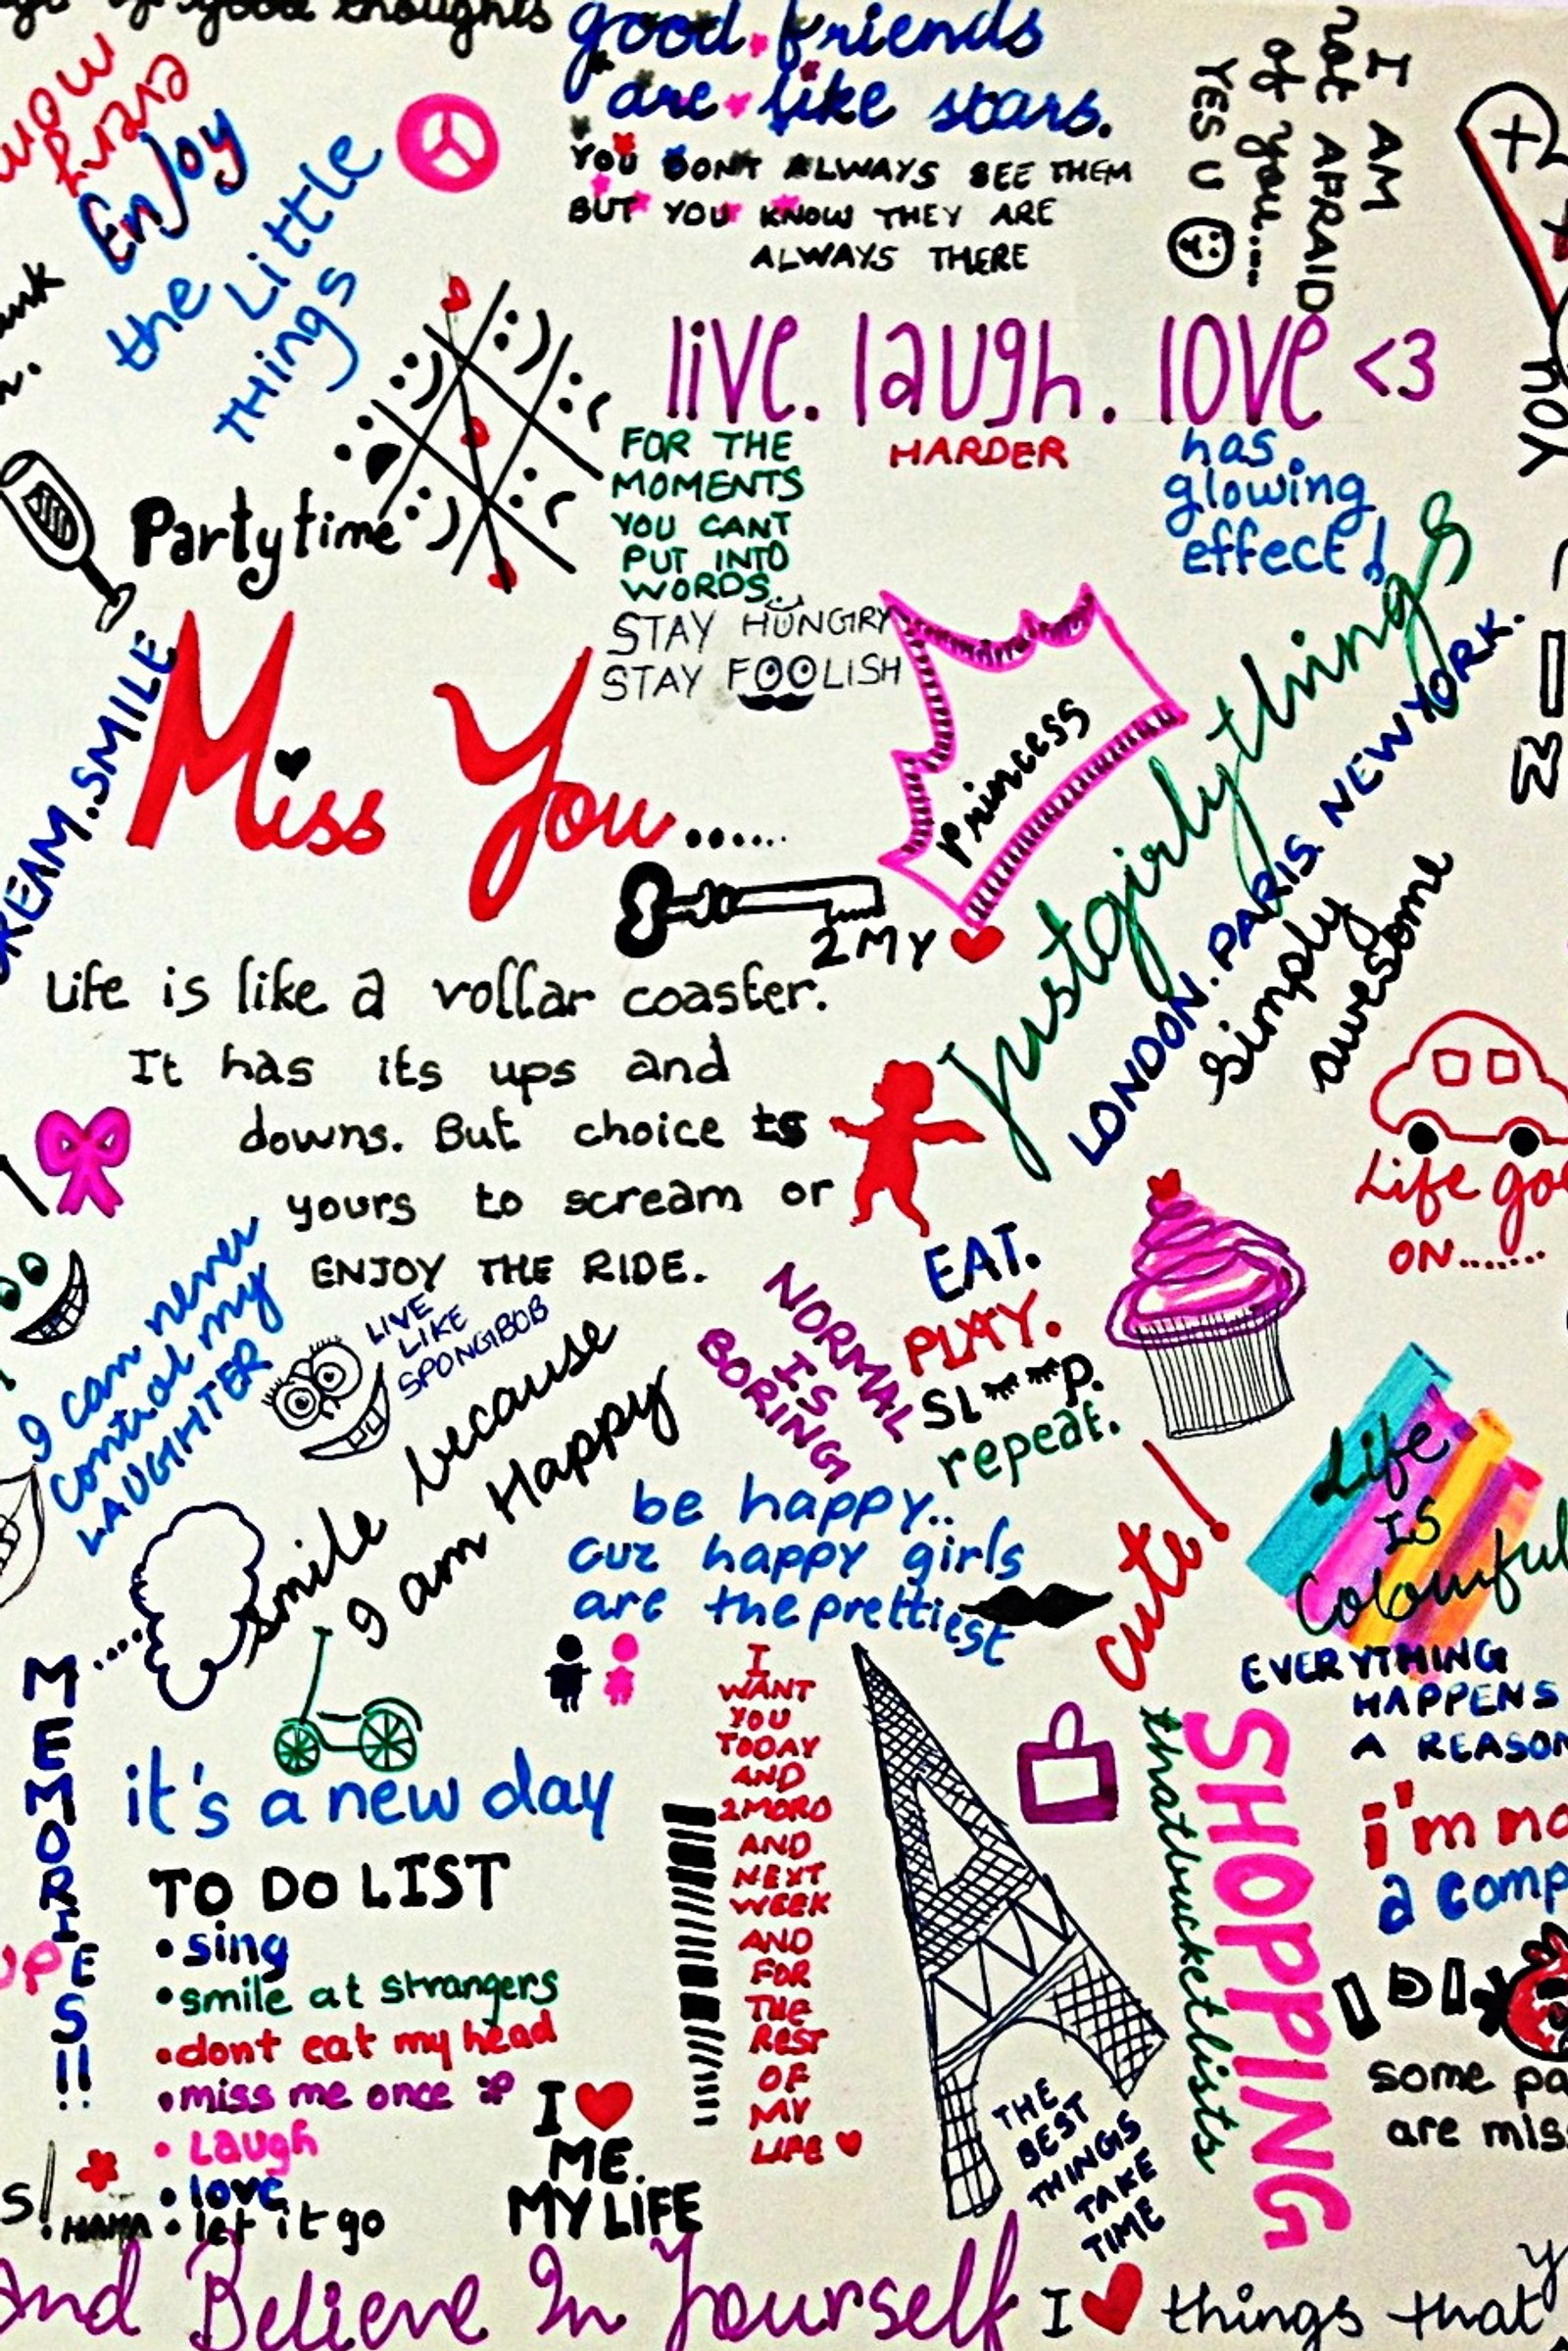 good thoughts
good friends
are like stars.
YOU DONT ALWAYS SEE THEM
BUT YOU KNOW THEY ARE
ALWAYS THERE
I AM
not AFRAID
of you....
YES U
every
Enjoy
the Little
THings
live. laugh. love <3
FOR THE
MOMENTS
YOU CANT
PUT INTO
WORDS.
HARDER
has
glowing
effect!
YOU
Party time
STAY HUNGRY
STAY FOOLISH
DREAM.SMILE
Miss You......
Princess
2 MY
justgirlythings
LONDON. PARIS. NEWYORK.
Simply
awesome
Life is like a vollar coaster.
It has its ups and
downs. But choice is
yours to scream or
ENJOY THE RIDE.
Life go
ON.......
I can never
control my
LAUGHTER
LIVE
LIKE
SPONGBOB
Smile because
I am Happy
NORMAL
IS
BORING
EAT.
PLAY.
SL**P.
repeat.
be happy..
cuz happy girls
are the prettiest
cute!
Life
IS
Colourful
EVERYTHING
HAPPENS
A REASON
MEMORIES!!
it's a new day
TO DO LIST
• sing
• smile at strangers
• dont eat my head
• miss me once :P
• Laugh
• love
• let it go
HAHA
I
WANT
YOU
TODAY
AND
2MORO
AND
NEXT
WEEK
AND
FOR
THE
REST
OF
MY
LIFE ♥
I ♥
ME.
MY LIFE
THE
BEST
THINGS
TAKE
TIME
thatbucketlists
SHOPPING
i'm no
a comp
some pa
are mis
And Believe In Yourself
I ♥ things that